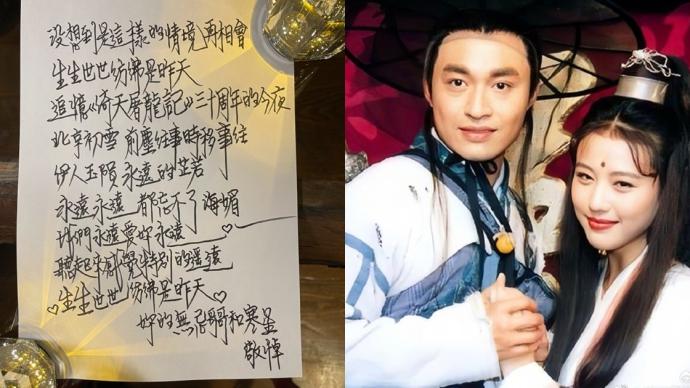 没想到是這樣的情境再相會
生生世世彷彿是昨天
追憶《倚天屠龍記》三十周年的今夜
北京初雪 前塵往事時移事往
伊人玉殞 永遠的芷若
永遠永遠 都忘不了海媚
我們永遠愛好永遠
聽起來都覺特別的遙遠
生生世世彷彿是昨天
好的無忌哥哥和寒星
敬悼